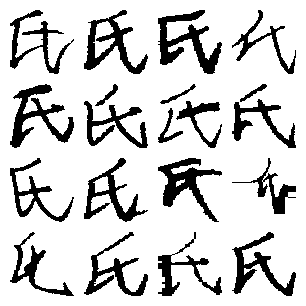 氏氏氏氏
氏氏氏氏
氏氏氏氏
氏氏氏氏